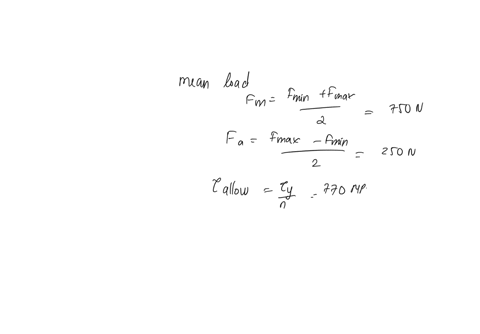 mean load
Fm = fmin + fmax / 2 = 750 N
Fa = fmax - fmin / 2 = 250 N
τallow = τy / n = 770 MP